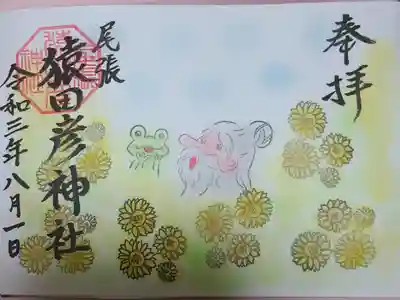 奉拝
尾張
猿田彦神社
令和三年八月一日